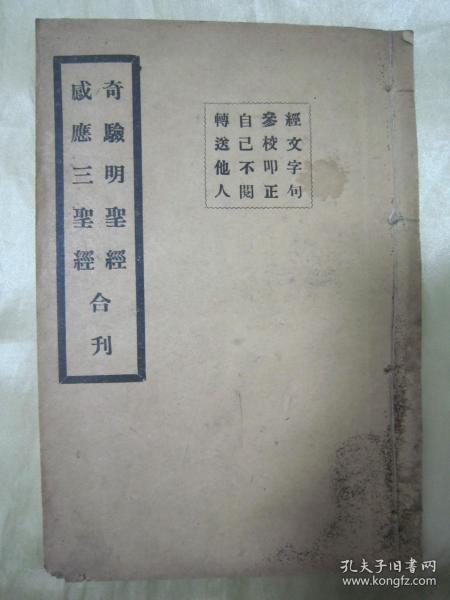 經文字句
參校叩正
自己不閱
轉送他人
奇驗明聖經
感應三聖經
合刊
孔夫子旧书网
www.kongfz.com